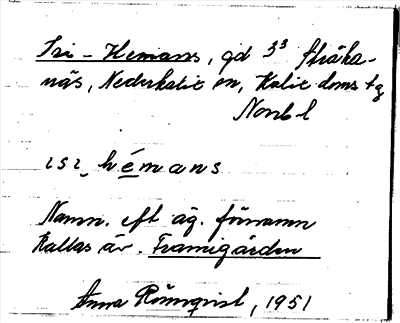 Isi-Hemans, gd 3³ Stråka-
näs, Nederkalix sn, Kalix doms tg
Norrb l
ısı_hémans
Namn. eft äg. förnamn
Kallas äv. Framigården
Anna Rönnqvist, 1951